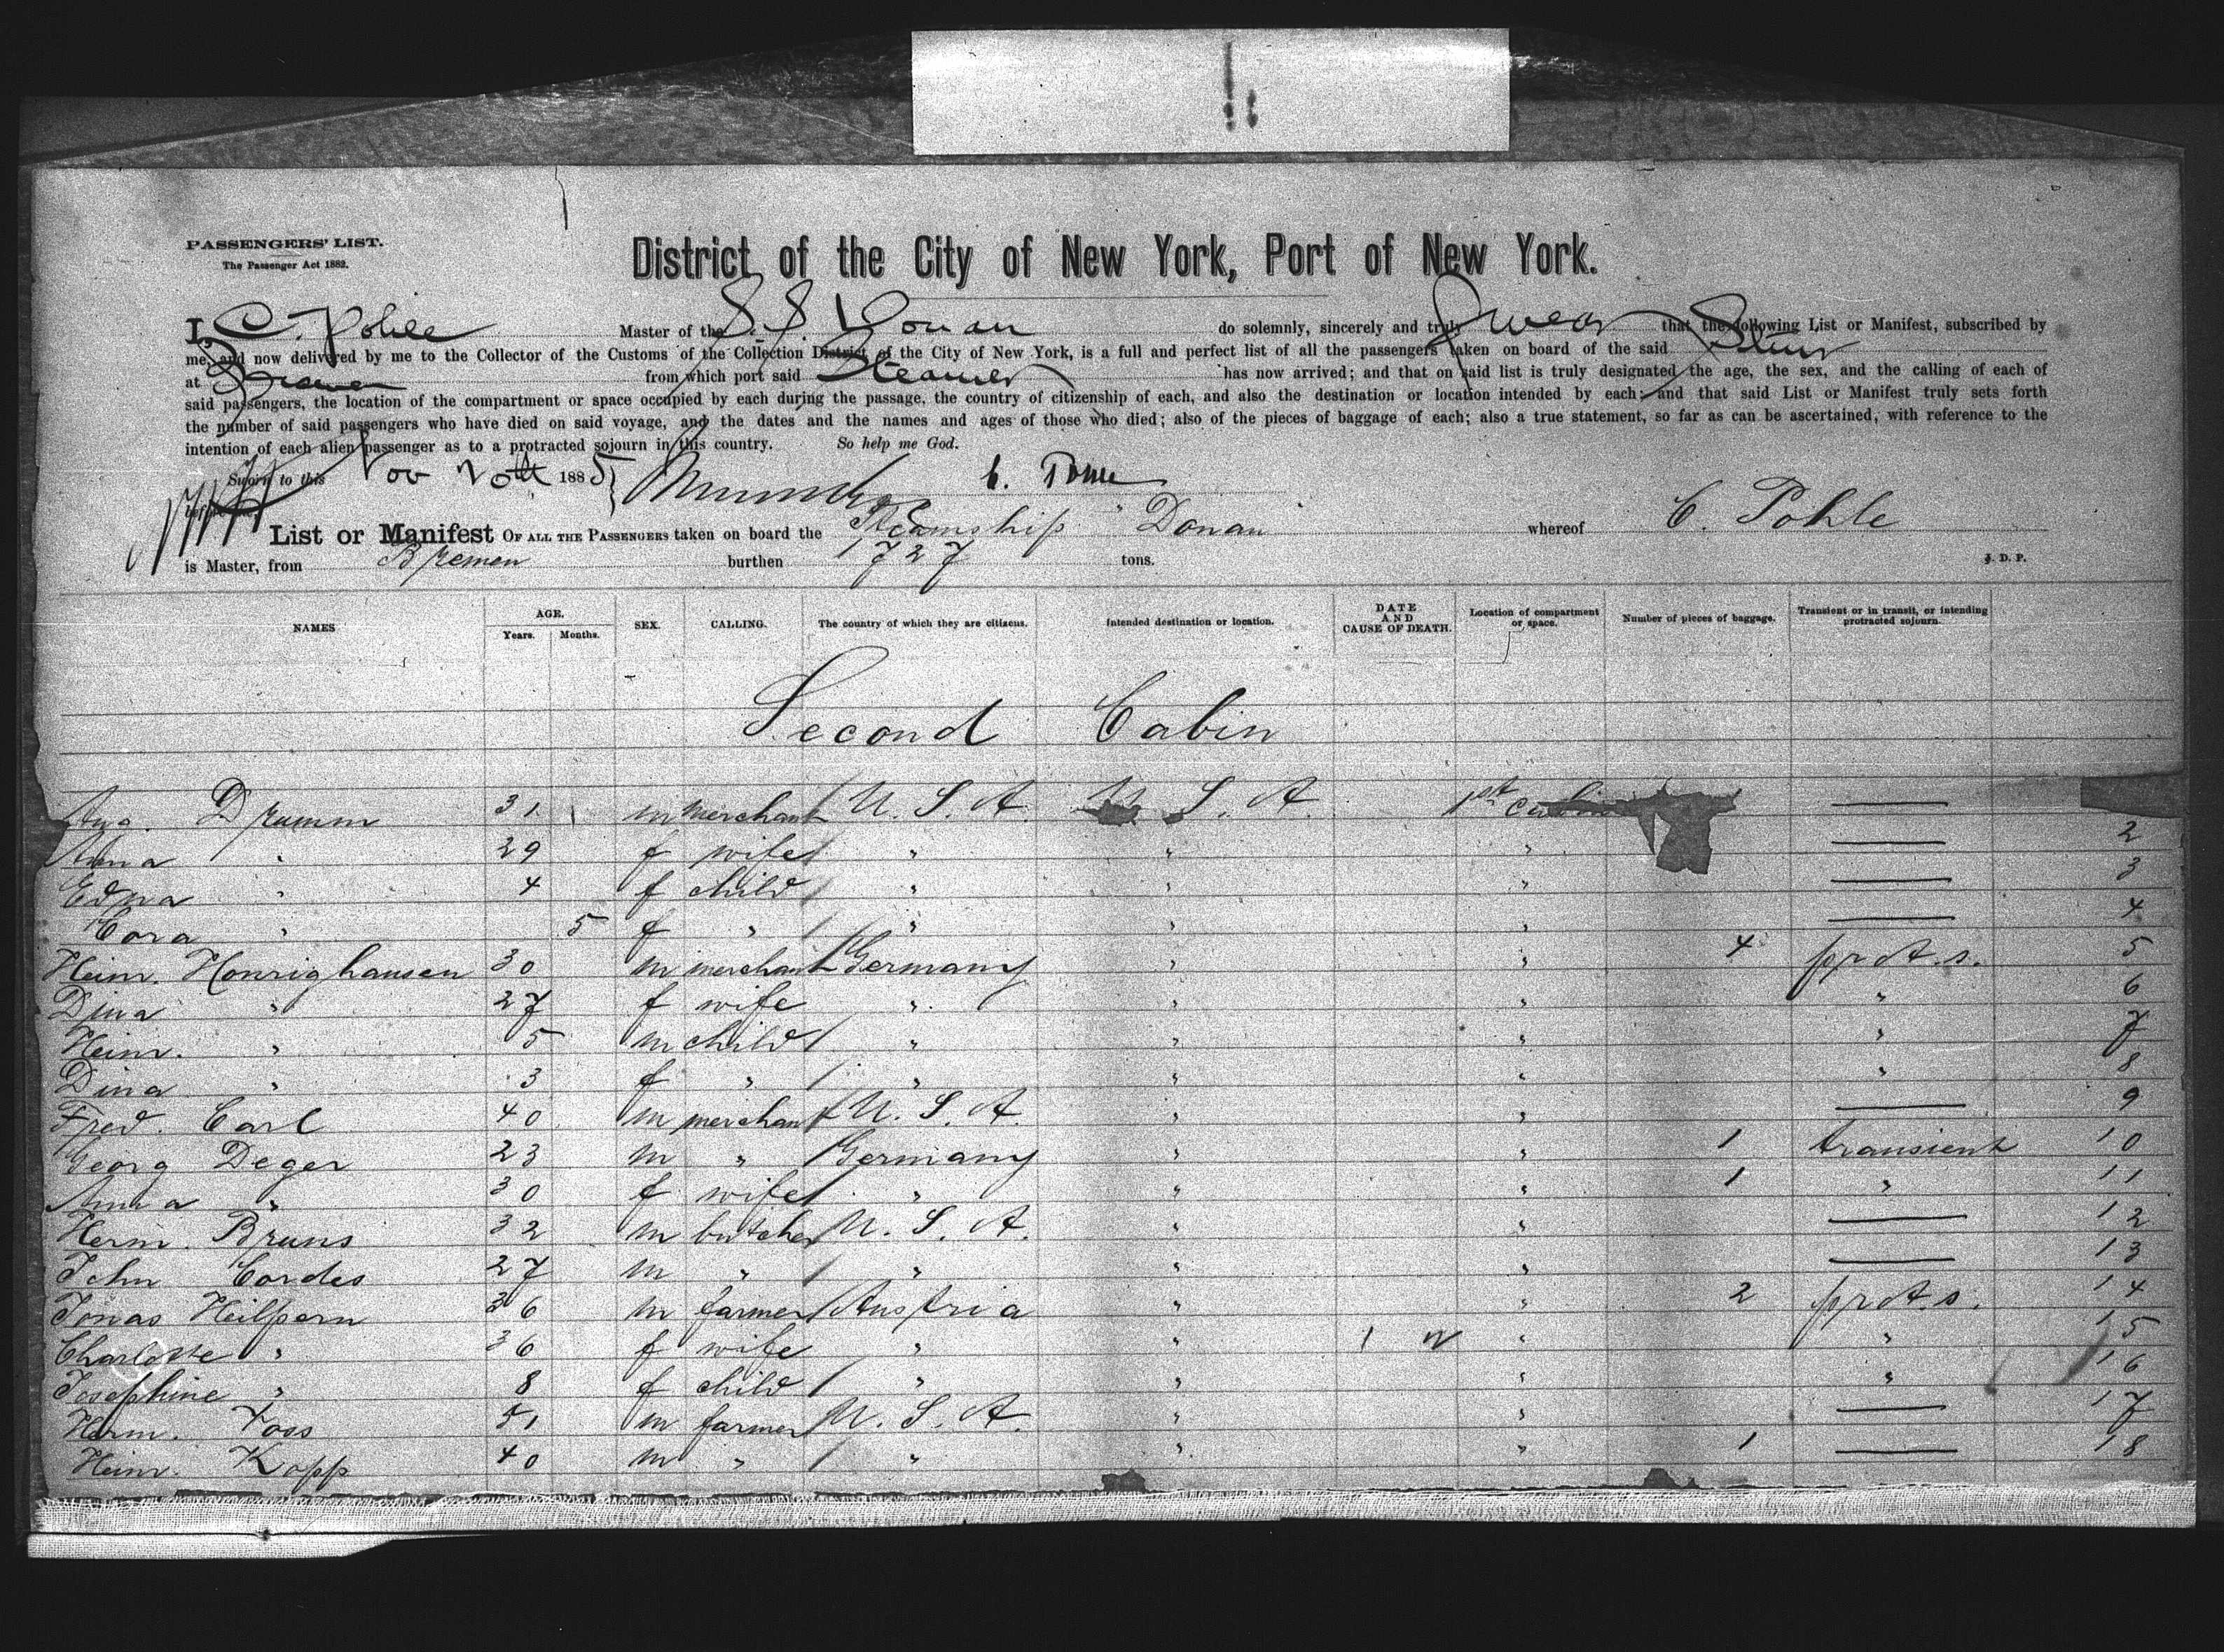 PASSENGERS' LIST.
The Passenger Act 1882.
District of the City of New York, Port of New York.
I, C. Pohle Master of the S. S. Donau do solemnly, sincerely and truly swear that the following List or Manifest, subscribed by
me, and now delivered by me to the Collector of the Customs of the Collection District of the City of New York, is a full and perfect list of all the passengers taken on board of the said
at Bremen from which port said Steamer has now arrived; and that on said list is truly designated the age, the sex, and the calling of each of
said passengers, the location of the compartment or space occupied by each during the passage, the country of citizenship of each, and also the destination or location intended by each; and that said List or Manifest truly sets forth
the number of said passengers who have died on said voyage, and the dates and the names and ages of those who died; also of the pieces of baggage of each; also a true statement, so far as can be ascertained, with reference to the
intention of each alien passenger as to a protracted sojourn in this country. So help me God.
Sworn to this Nov 20th 1885 C. Pohle
before me,
List or Manifest OF ALL THE PASSENGERS taken on board the Steamship " Donau whereof C. Pohle
is Master, from Bremen burthen 1727 tons. J. D. P.
NAMES AGE. Years. Months. SEX. CALLING. The country of which they are citizens. Intended destination or location. DATE AND CAUSE OF DEATH. Location of compartment or space. Number of pieces of baggage. Transient or in transit, or intending protracted sojourn.
Second Cabin
Aug. Drumm 31 m merchant U. S. A. U. S. A. 1st Cabin —
Anna " 29 f wife " " " — 2
Edna " 4 f child " " " — 3
Cora " 5 f " " " " — 4
Heinr. Honrighausen 30 m merchant Germany " " 4 protr. s. 5
Dina " 27 f wife " " " " 6
Heinr. " 5 m child " " " " 7
Dina " 3 f " " " " " 8
Fred. Carl 40 m merchant U. S. A. " " — 9
Georg Deger 23 m " Germany " " 1 transient 10
Anna " 30 f wife " " " 1 " 11
Herm. Bruns 32 m butcher U. S. A. " " — 12
John Cordes 27 m " " " " — 13
Jonas Heilpern 36 m farmer Austria " " 2 protr. s. 14
Charlotte " 36 f wife " " " " 15
Josephine " 8 f child " " " " 16
Herm. Voss 51 m farmer U. S. A. " " — 17
Heinr. Kopp 40 m " " " " 1 — 18